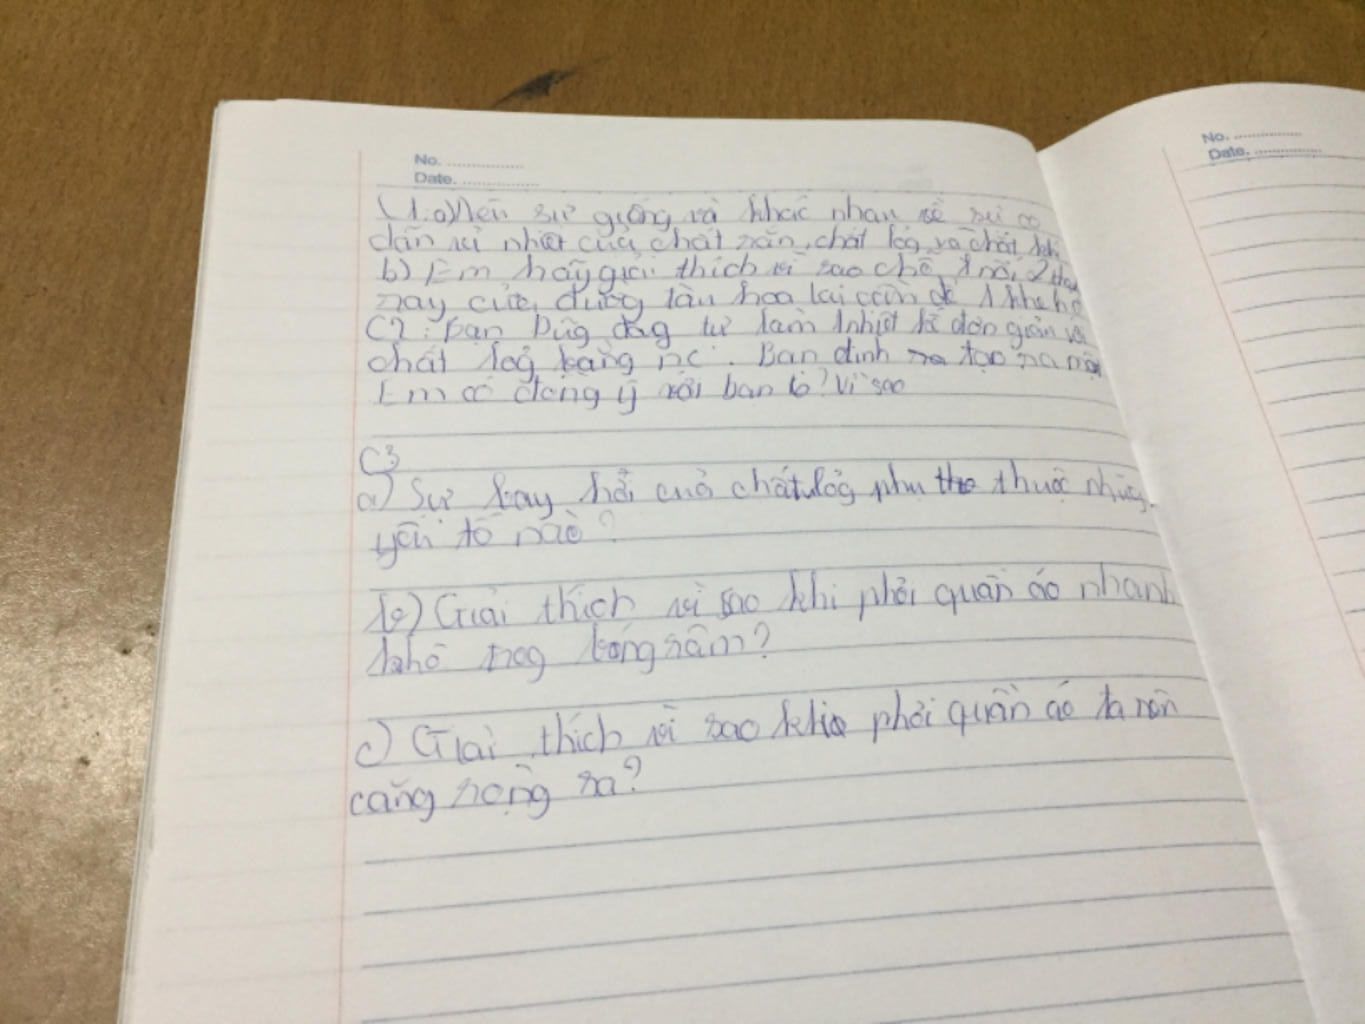 No. ............
Date. ............
C1.a) Nêu sự giống và khác nhau về sự co
dãn vì nhiệt của chất rắn, chất lỏg và chất khí
b) Em hãy giải thích vì sao chỗ nối 2
ray của đườg tàu hoả lại cần để 1 khe hở
C2: Bạn Dũg đag tự làm 1 nhiệt kế đơn giản
chất lỏg bằng nc. Bạn định tạo ra
Em có đồng ý với bạn ko? Vì sao
C3
a) Sự bay hơi của chất lỏg phụ thuộc những
yếu tố nào?
b) Giải thích vì sao khi phơi quần áo nhanh
khô trog bóng râm?
c) Giải thích vì sao khi phơi quần áo ta nên
căng rộng ra?
No. ............
Date. ............